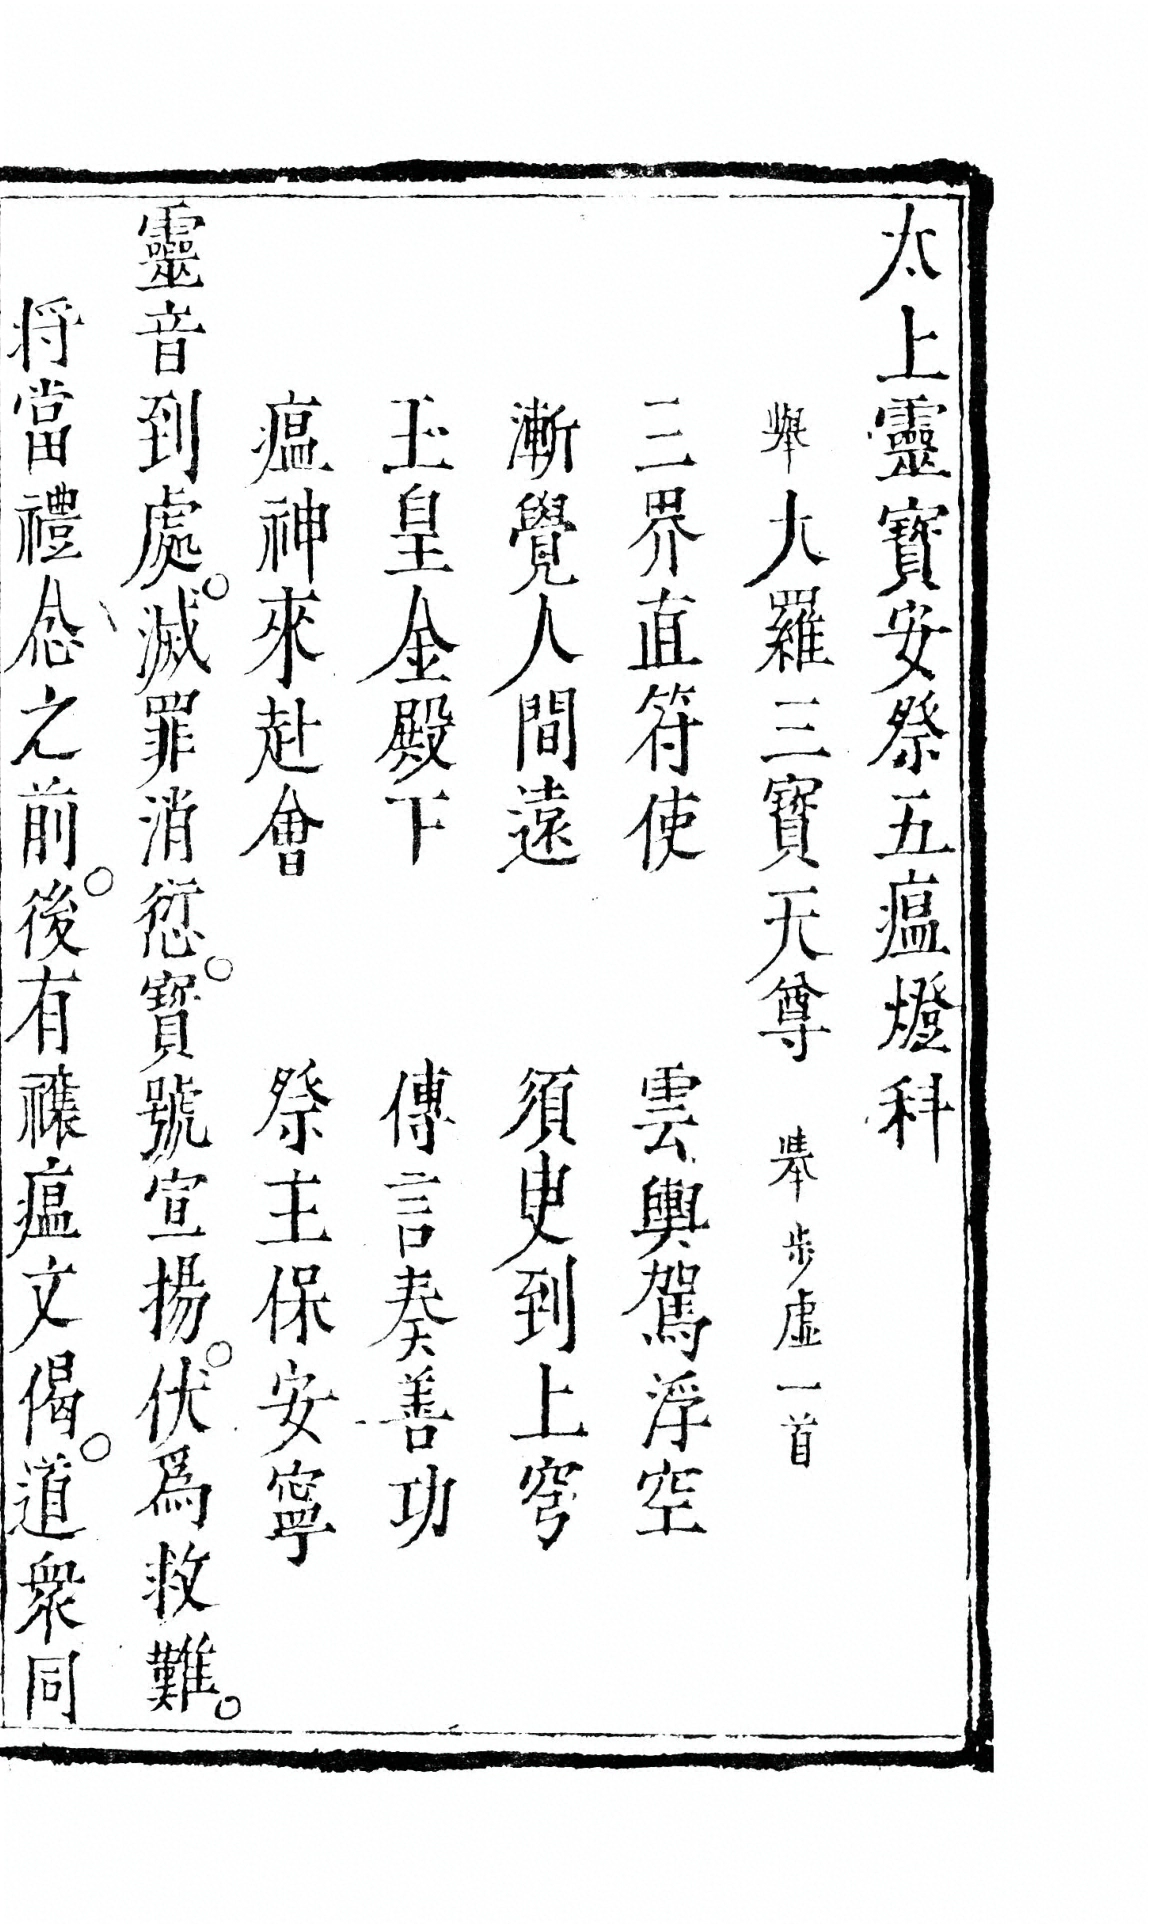 太上靈寶安祭五瘟燈科
舉大羅三寶天尊 舉步虛一首
三界直符使 雲輿駕浮空
漸覺人間遠 須臾到上穹
玉皇金殿下 傳言奏善功
瘟神來赴會 祭主保安寧
靈音到處。滅罪消愆。寶號宣揚。伏爲救難。
将當禮念之前。後有禳瘟文偈。道衆同